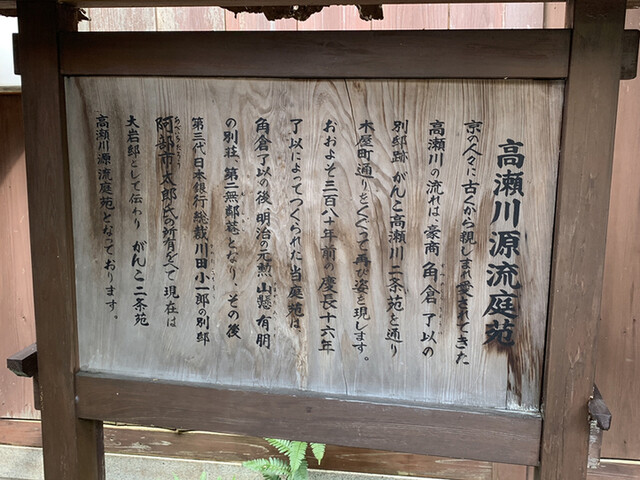 高瀬川源流庭苑
京の人々に古くから親しまれ愛されてきた
高瀬川の流れは、豪商 角倉 了以の
別邸跡 がんこ高瀬川二条苑を通り
木屋町通りをくぐって再び姿を現します。
おおよそ三百八十年前の慶長十六年
了以によってつくられた当庭苑は
角倉了以の後、明治の元勲 山縣 有朋
の別荘 第二無鄰菴となり、その後
第三代日本銀行総裁 川田小一郎の別邸
阿部市太郎氏の所有をへて 現在は
大岩邸として伝わり がんこ二条苑
高瀬川源流庭苑となっております。